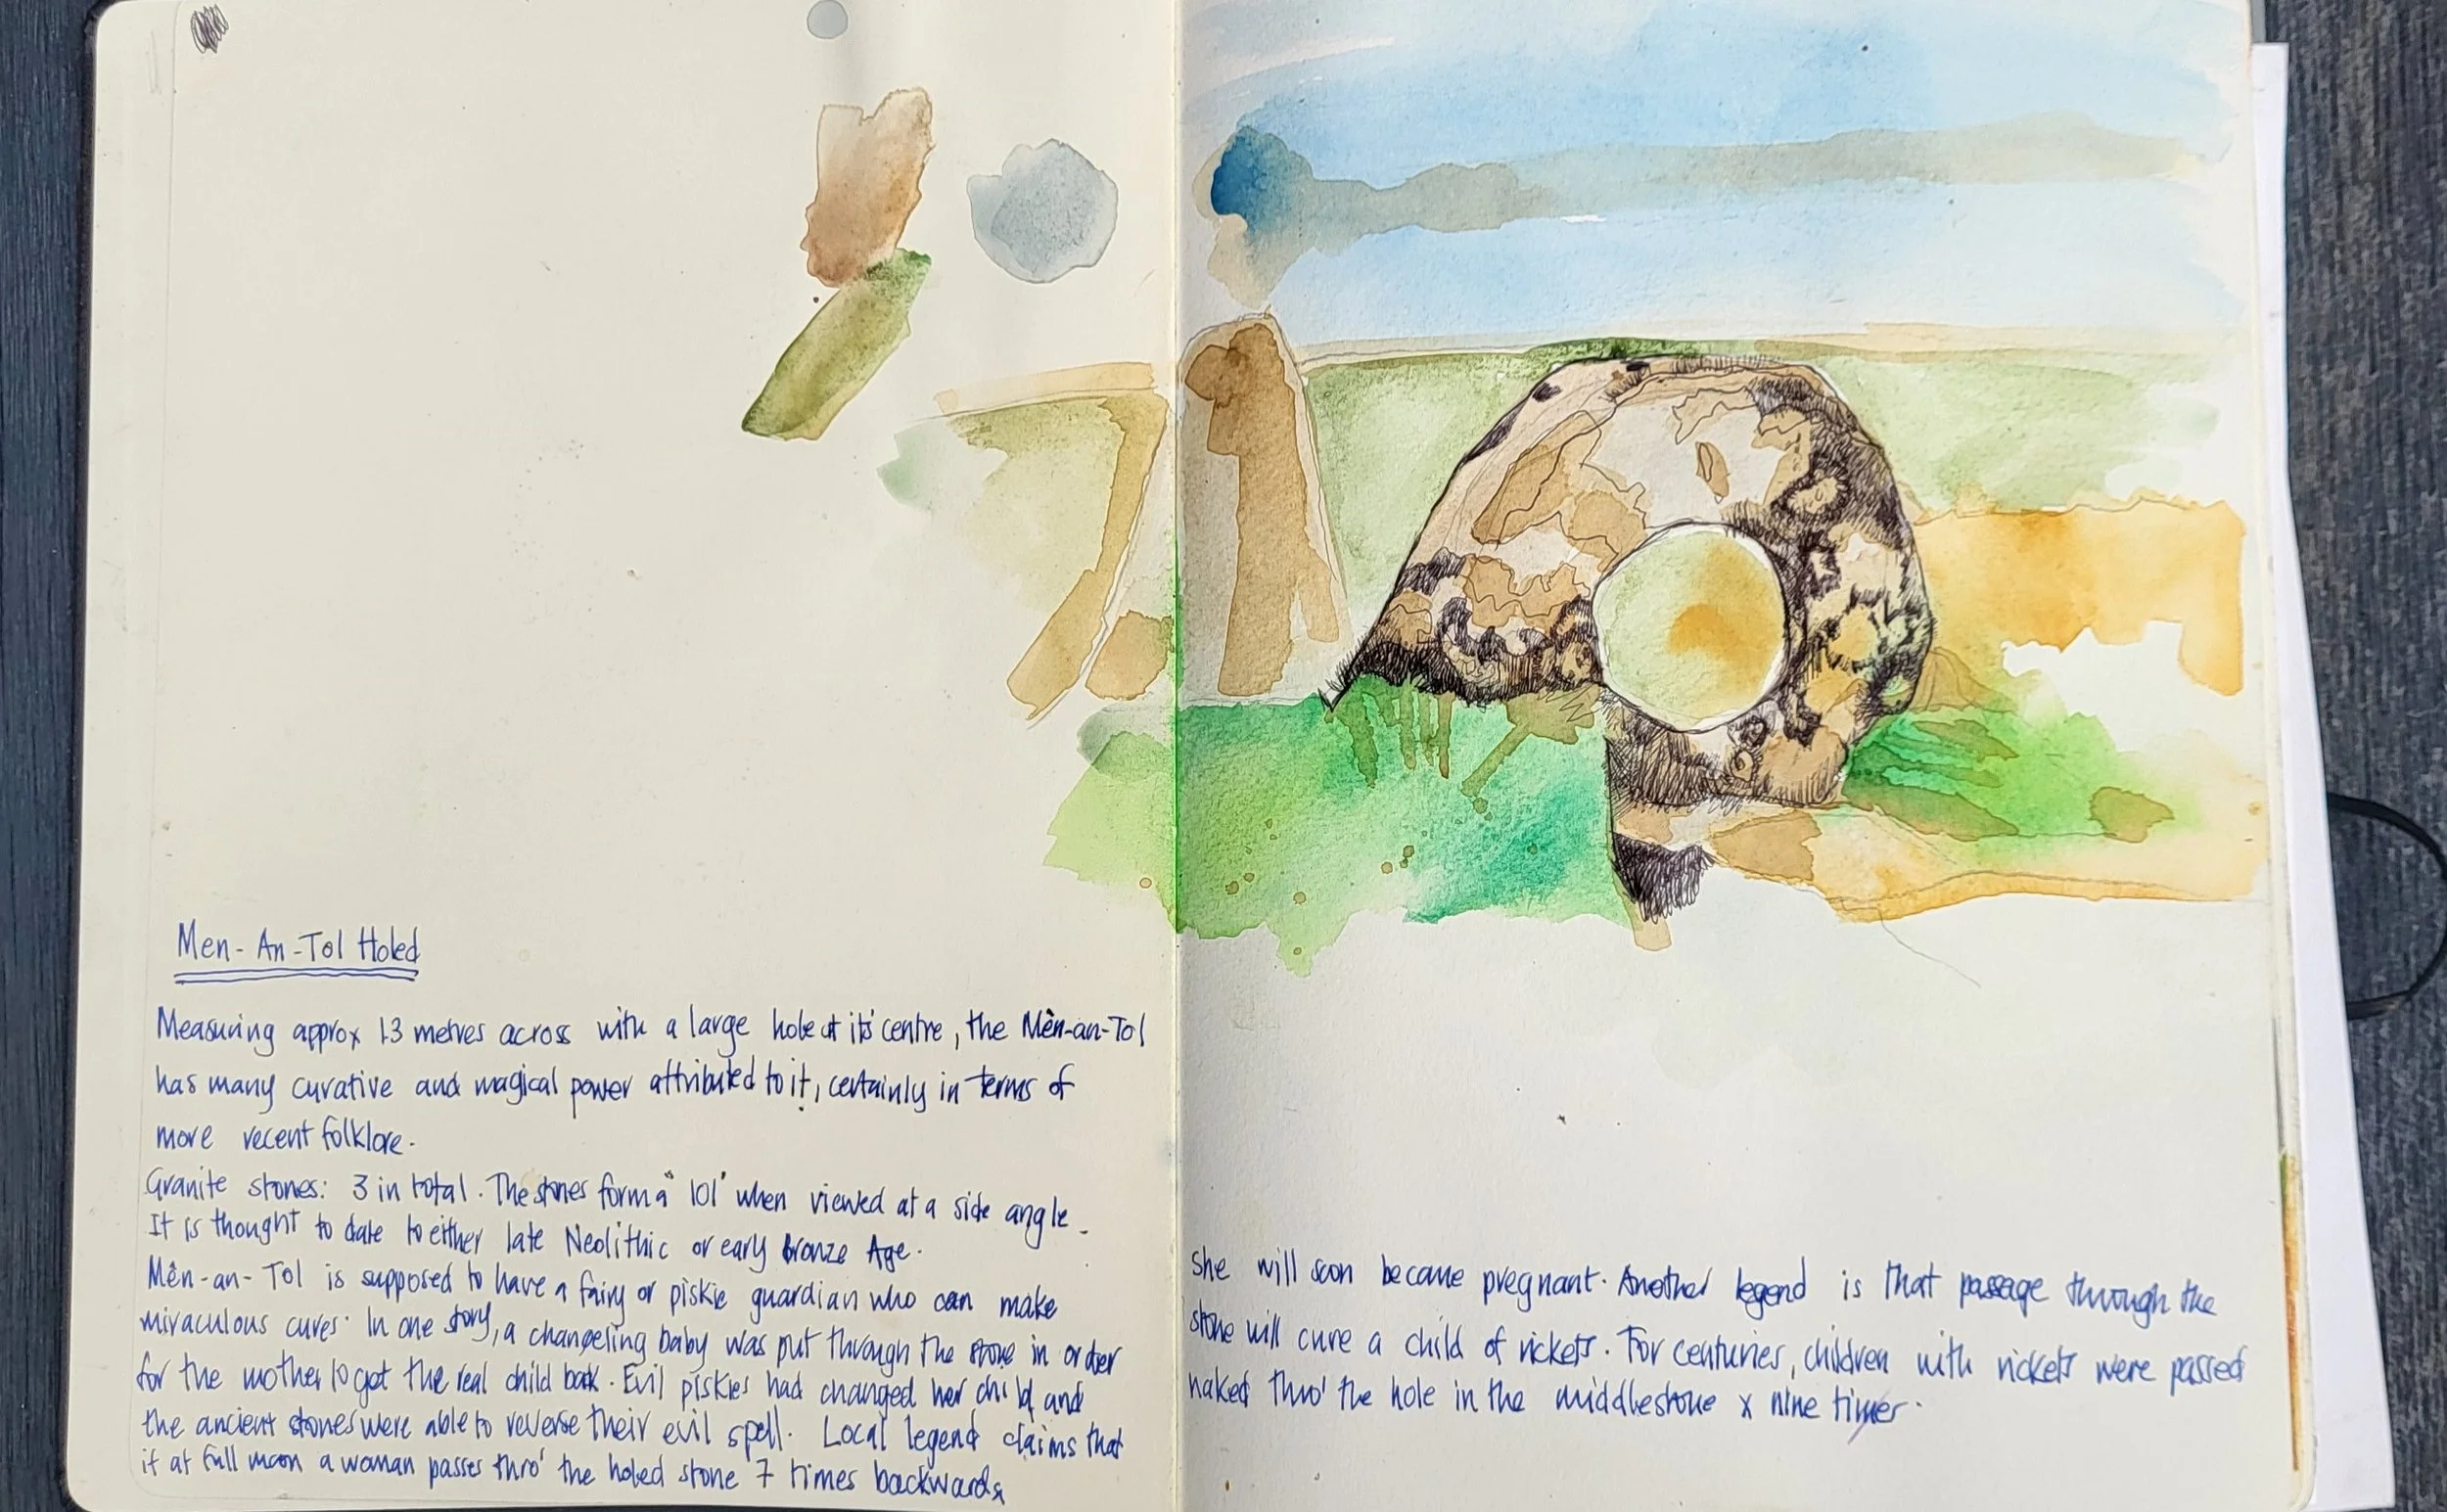 Men-An-Tol Holed
Measuring approx 1.3 metres across with a large hole at its' centre, the Mên-an-Tol
has many curative and magical power attributed to it, certainly in terms of
more recent folklore.
Granite stones: 3 in total. The stones form a '101' when viewed at a side angle.
It is thought to date to either late Neolithic or early bronze Age.
Mên-an-Tol is supposed to have a fairy or piskie guardian who can make
miraculous cures. In one story, a changeling baby was put through the stone in order
for the mother to get the real child back. Evil piskies had changed her child and
the ancient stones were able to reverse their evil spell. Local legend claims that
if at full moon a woman passes thro' the holed stone 7 times backwards
she will soon become pregnant. Another legend is that passage through the
stone will cure a child of rickets. For centuries, children with rickets were passed
naked thro' the hole in the middlestone x nine times.